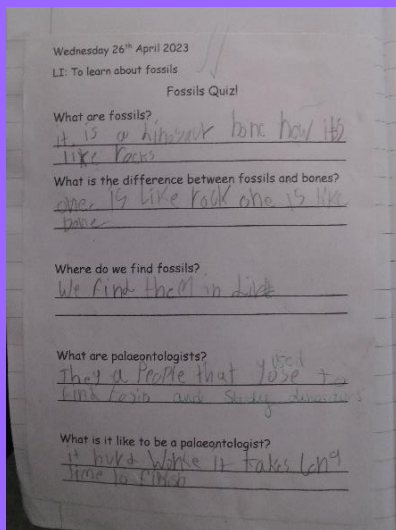 Wednesday 26th April 2023
LI: To learn about fossils
Fossils Quiz!
What are fossils?
it is a dinosaur bone how it's
like rocks
What is the difference between fossils and bones?
one is like rock one is like
bone
Where do we find fossils?
We find them in
What are palaeontologists?
They a People that used to
find and study dinosaurs
What is it like to be a palaeontologist?
it hurd. Worke it takes long
time to finish